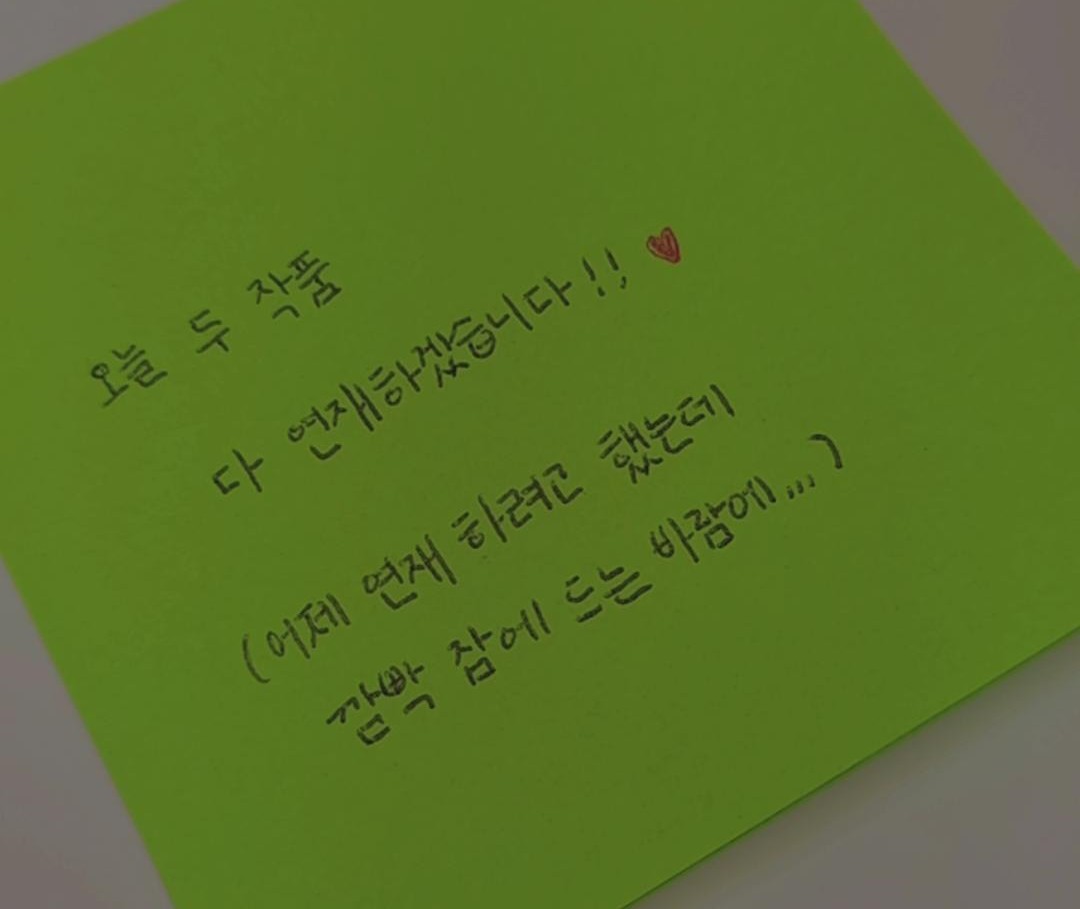 오늘 두 작품
다 연재하겠습니다!! ♥
(어제 연재 하려고 했는데
깜빡 잠에 드는 바람에...)